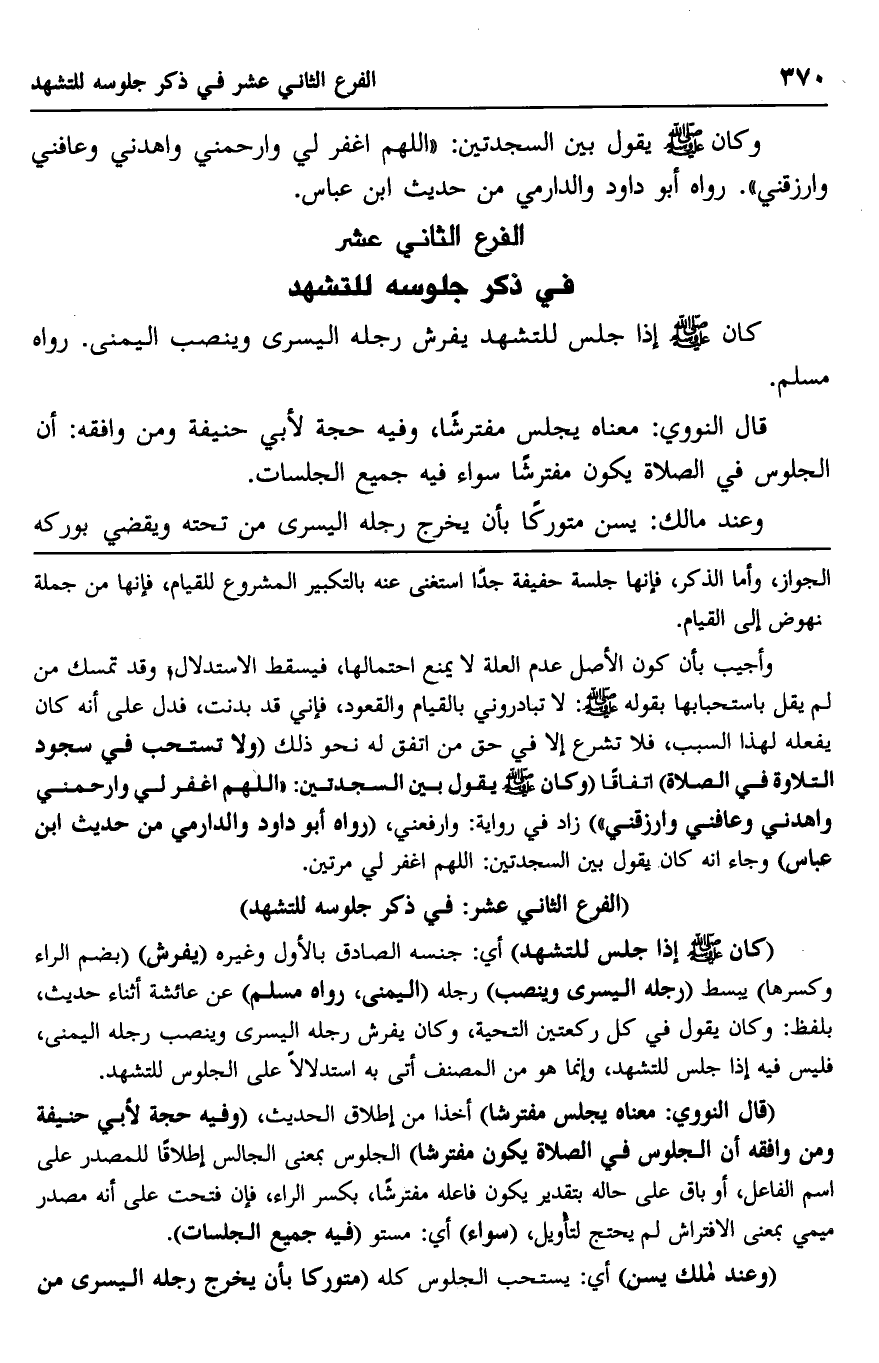 ٣٧٠ الفرع الثاني عشر في ذكر جلوسه للتشهد
وكان ﷺ يقول بين السجدتين: «اللهم اغفر لي وارحمني واهدني وعافني
وارزقني». رواه أبو داود والدارمي من حديث ابن عباس.
الفرع الثاني عشر
في ذكر جلوسه للتشهد
كان ﷺ إذا جلس للتشهد يفرش رجله اليسرى وينصب اليمنى. رواه
مسلم.
قال النووي: معناه يجلس مفترشًا، وفيه حجة لأبي حنيفة ومن وافقه: أن
الجلوس في الصلاة يكون مفترشًا سواء فيه جميع الجلسات.
وعند مالك: يسن متوركًا بأن يخرج رجله اليسرى من تحته ويقضي بوركه
الجواز، وأما الذكر، فإنها جلسة حفيفة جدًا استغنى عنه بالتكبير المشروع للقيام، فإنها من جملة
نهوض إلى القيام.
وأجيب بأن كون الأصل عدم العلة لا يمنع احتمالها، فيسقط الاستدلال، وقد تمسك من
لم يقل باستحبابها بقوله ﷺ: لا تبادروني بالقيام والقعود، فإني قد بدنت، فدل على أنه كان
يفعله لهذا السبب، فلا تشرع إلا في حق من اتفق له نحو ذلك (ولا تستحب في سجود
التلاوة في الصلاة) اتفاقًا (وكان ﷺ يقول بين السجدتين: «اللهم اغفر لي وارحمني
واهدني وعافني وارزقني») زاد في رواية: وارفعني، (رواه أبو داود والدارمي من حديث ابن
عباس) وجاء انه كان يقول بين السجدتين: اللهم اغفر لي مرتين.
(الفرع الثاني عشر: في ذكر جلوسه للتشهد)
(كان ﷺ إذا جلس للتشهد) أي: جنسه الصادق بالأول وغيره (يفرش) (بضم الراء
وكسرها) يبسط (رجله اليسرى وينصب) رجله (اليمنى، رواه مسلم) عن عائشة أثناء حديث،
بلفظ: وكان يقول في كل ركعتين التحية، وكان يفرش رجله اليسرى وينصب رجله اليمنى،
فليس فيه إذا جلس للتشهد، وإنما هو من المصنف أتى به استدلالاً على الجلوس للتشهد.
(قال النووي: معناه يجلس مفترشا) أخذا من إطلاق الحديث، (وفيه حجة لأبي حنيفة
ومن وافقه أن الجلوس في الصلاة يكون مفترشا) الجلوس بمعنى الجالس إطلاقًا للمصدر على
اسم الفاعل، أو باق على حاله بتقدير يكون فاعله مفترشًا، بكسر الراء، فإن فتحت على أنه مصدر
ميمي بمعنى الافتراش لم يحتج لتأويل، (سواء) أي: مستو (فيه جميع الجلسات).
(وعند مٰلك يسن) أي: يستحب الجلوس كله (متوركا بأن يخرج رجله اليسرى من